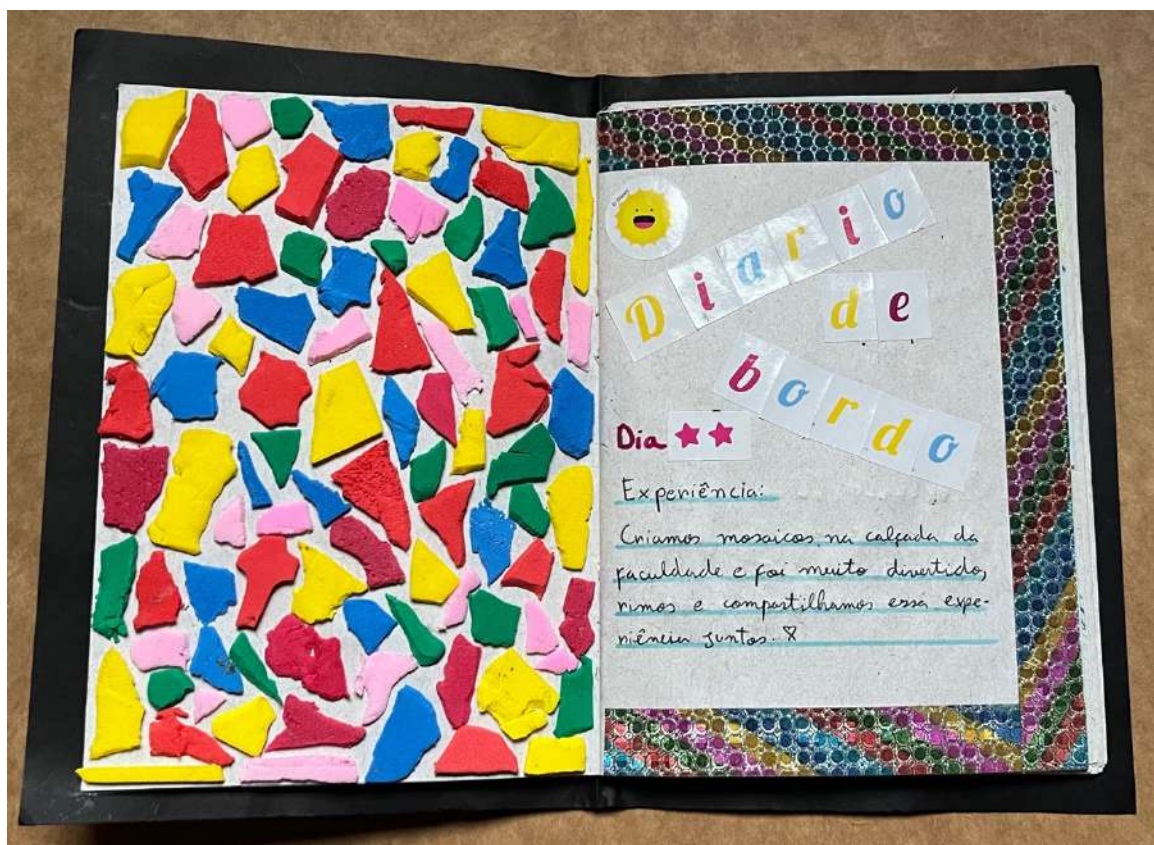 Diario
de
bordo
Dia ★★
Experiência:
Criamos mosaicos na calçada da
faculdade e foi muito divertido,
rimos e compartilhamos essa expe-
riência juntos.